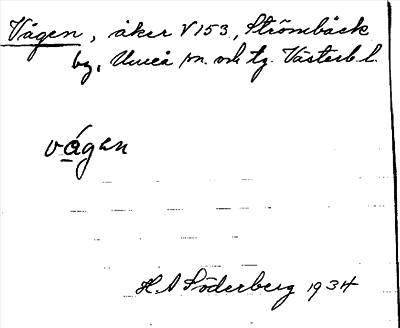 Vågen, åker V 153, Strömbäck
by, Umeå sn. och tg. Västerb. l.
vágen
H. A Söderberg 1934